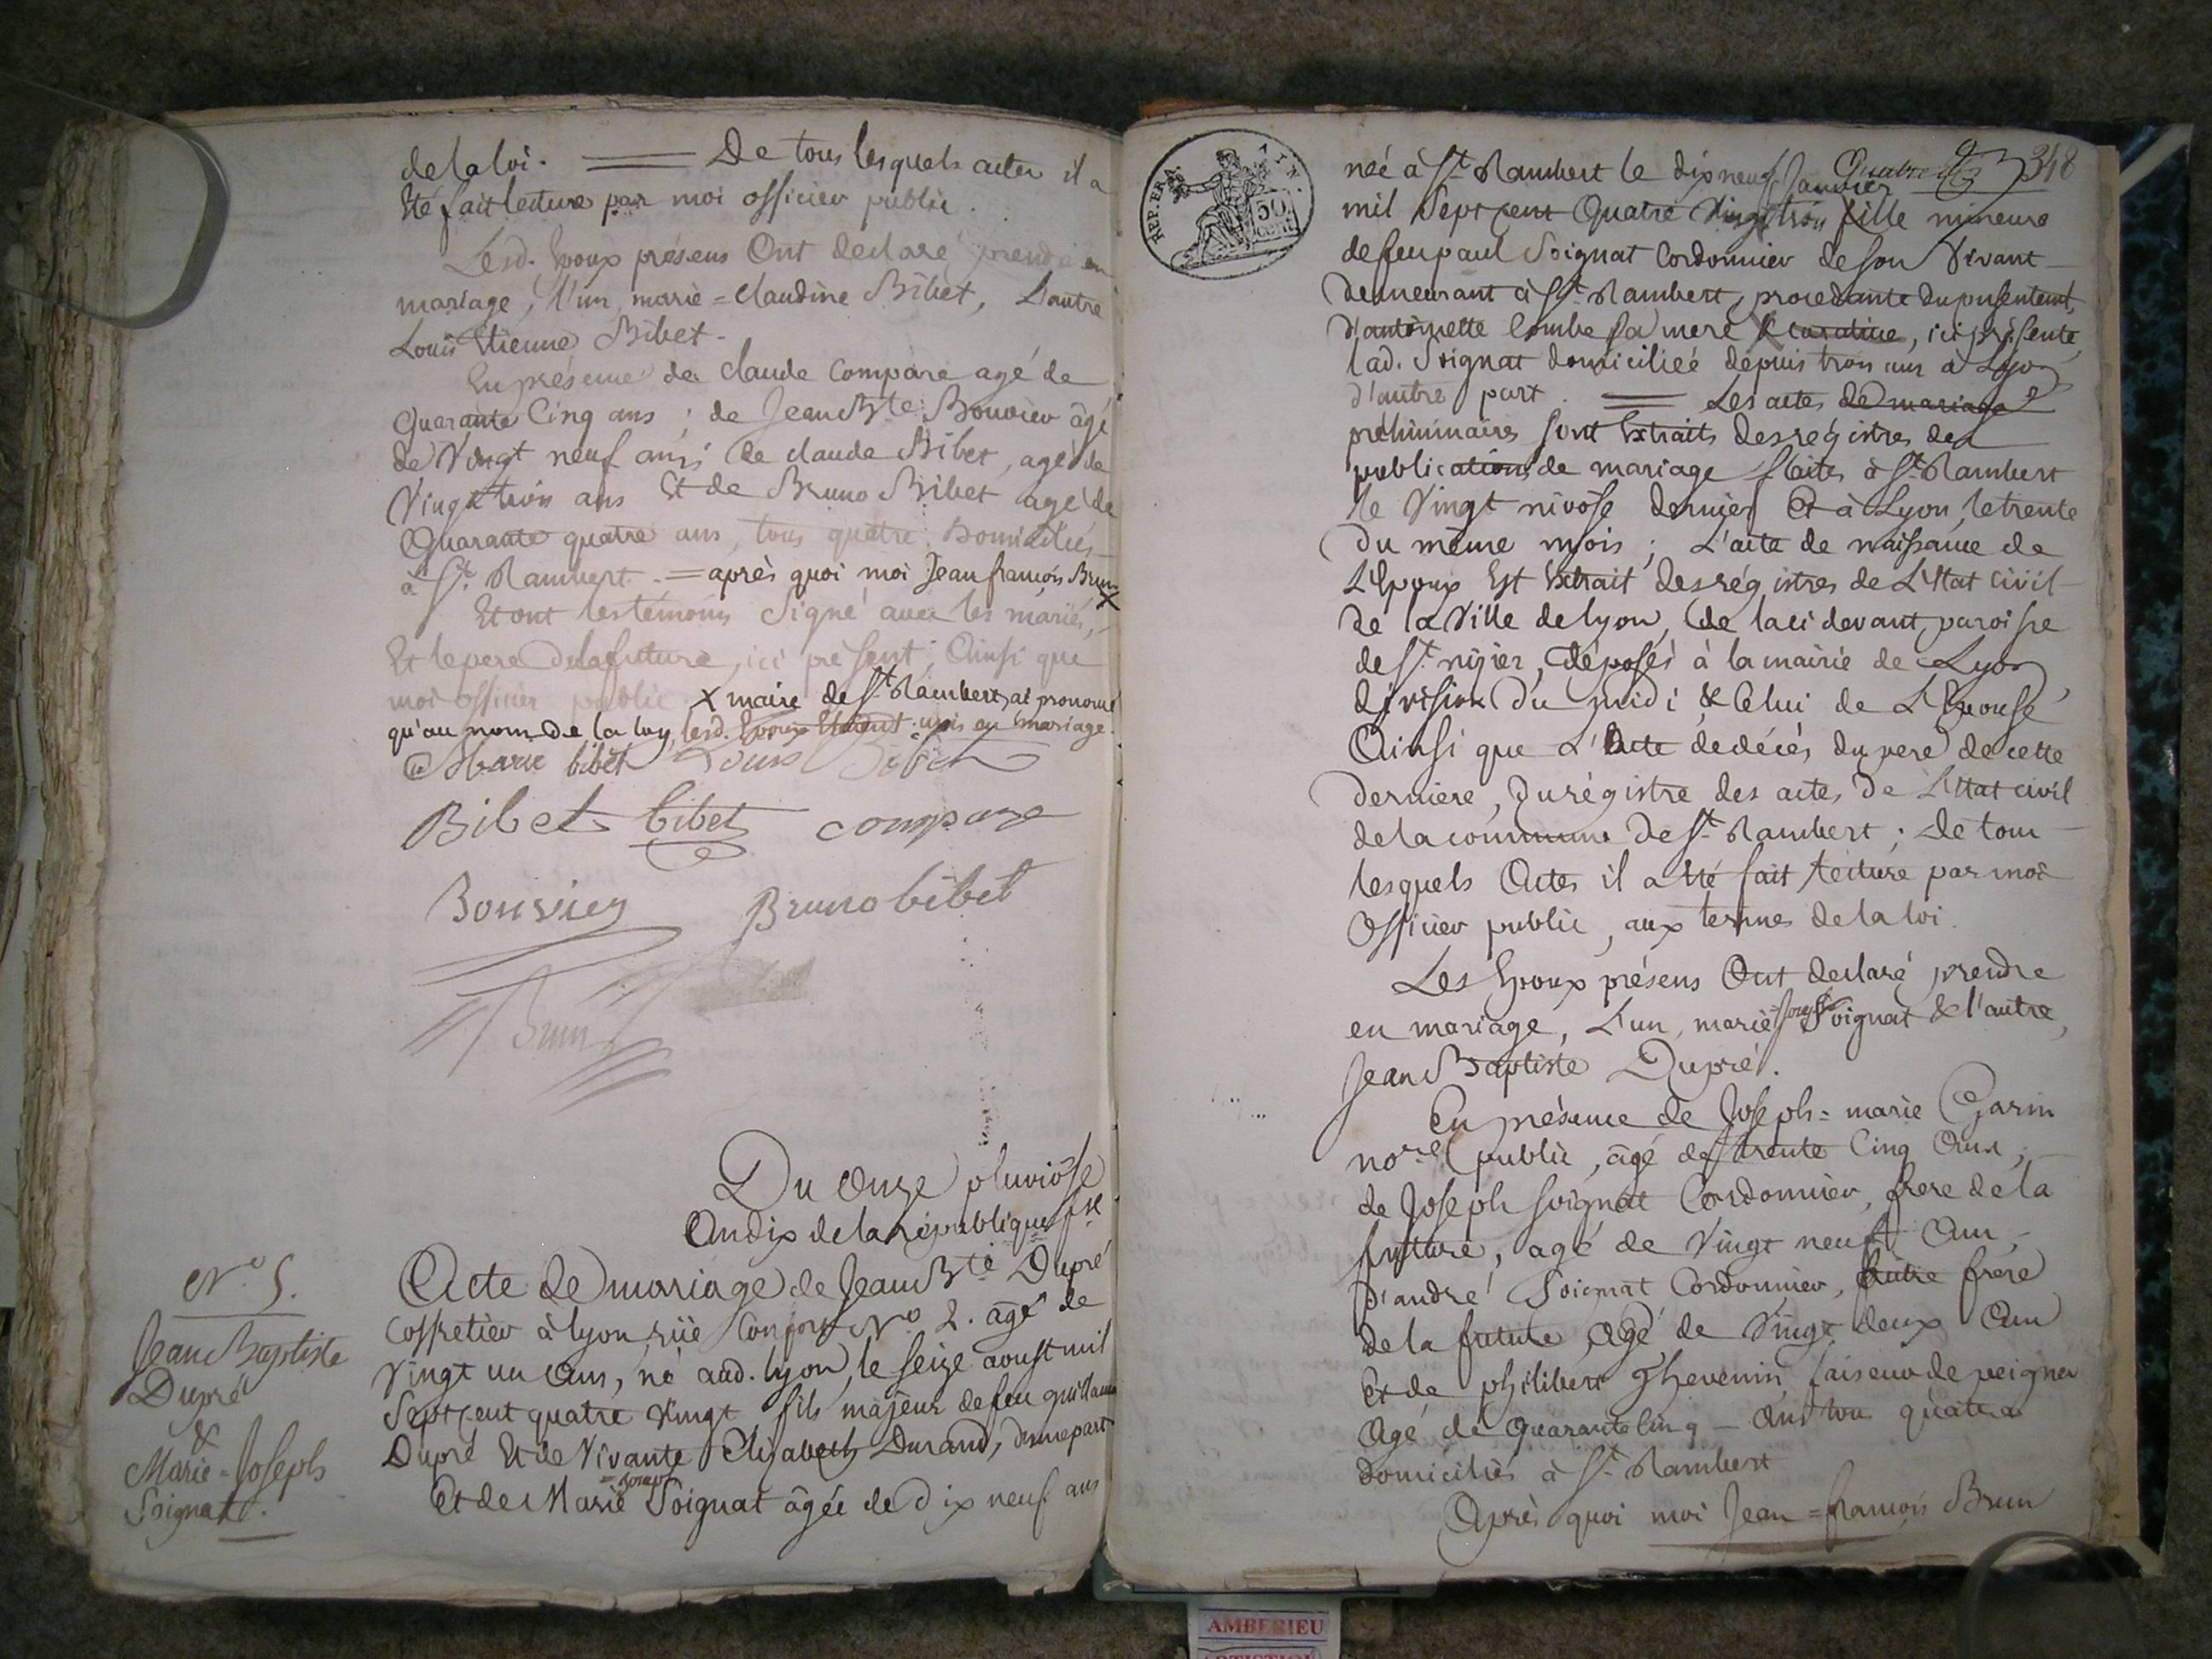 de la loi. De tous lesquels actes il a
Eté fait lecture par moi officier public.
Lesd. Epoux présens Ont declaré prendre en
mariage, l'un, marie=claudine Bibet, L'autre
Louis Etienne Bibet.
En présence de claude Compare agé de
Quarante Cinq ans; de Jean Bte Bouvier âgé
de Vingt neuf ans; de claude Bibet, agé de
Vingt trois ans Et de Bruno Bibet agé de
Quarante quatre ans, tous quatre Domiciliés
à St. Rambert. = après quoi moi Jean françois Brun X
Et ont les témoins Signé avec les mariés,
Et le pere de la future, ici présent, Ainsi que
moi officier public X maire de St. Rambert, ai prononcé
qu'au nom de la loy, lesd. Epoux Etaient unis en mariage.
Marie bibet Louis Bibet
Bibet bibet compare
Bouvier Bruno bibet
Brun
Du Onze pluviôse
An dix de la république fse.
N.o 5.
Jean Baptiste
Dupré
&
Marie=Joseph
Soignat.
Acte de mariage de Jean Bte Dupré
Coffretier à lyon rüe Confort No 2. âgé de
Vingt un Ans, né aud. lyon, le seize aoust mil
Sept cent quatre vingt fils majeur de feu guillaume
Dupré Et de Vivante Elizabeth Durand, d'une part
=Joseph
Et de Marie Soignat âgée de dix neuf ans
RÉP. FRA. AIN.
50 cent.
348
neé à St. Rambert le dix neuf Janvier
mil Sept cent Quatre Vingt trois fille mineure
de feu paul Soignat Cordonnier de son Vivant
Demeurant à St. Rambert, procedante du
d'antoinette Combe sa mere & curatrice, ici présente,
lad. Soignat domiciliée depuis trois ans à Lyon
d'autre part. Les actes de mariage
préliminaires sont Extraits des régistres des
publications de mariage faites à St. Rambert
le Vingt nivôse dernier Et à Lyon, le trente
du même mois; L'acte de naissance de
L'Epoux Est Extrait des régistres de L'Etat civil
de la Ville de lyon, de la ci devant paroisse
de St. nizier, déposés à la mairie de Lyon
division du midi & Celui de L'Epouse
Ainsi que L'Acte de décés du pere de cette
derniere, du régistre des actes de L'Etat civil
de la commune de St. Rambert; De tous
lesquels Actes il a été fait lecture par moi
Officier public, aux termes de la loi.
Les Epoux présens Ont declaré prendre
en mariage, L'un, marie=Joseph Soignat & l'autre,
Jean Baptiste Dupré.
En présence de Joseph=marie Garin
nore public, âgé de trente Cinq Ans;
de Joseph soignat Cordonnier, frere de la
future, agé de Vingt neuf Ans,
d'andré Soignat Cordonnier, Autre frere
de la future Agé de Vingt deux Ans
Et de philibert Thevenin faiseur de peignes
Agé de Quarante Cinq Ans tous quatre
domiciliés à St. Rambert
Après quoi moi Jean=françois Brun
AMBERIEU